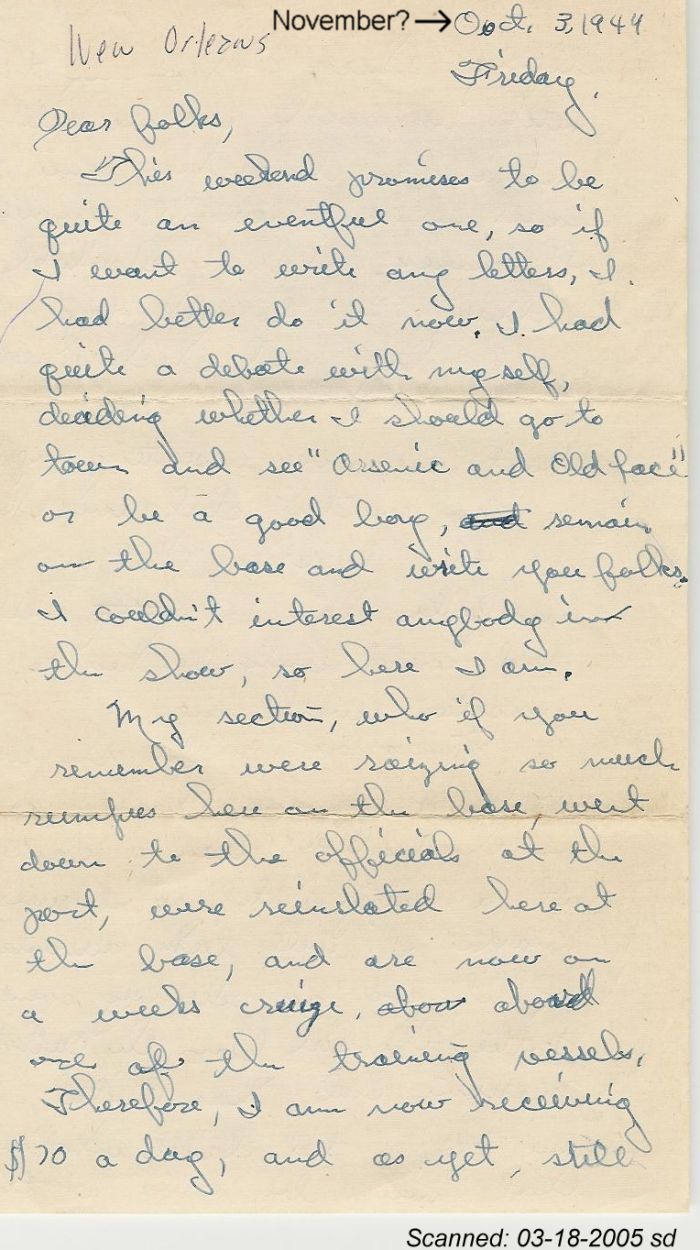 November? → Oct. 3, 1944
New Orleans
Friday,
Dear folks,
This weekend promises to be
quite an eventful one, so if
I want to write any letters, I
had better do it now. I had
quite a debate with myself,
deciding whether I should go to
town and see "Arsenic and Old face"
or be a good boy, and remain
on the base and write you folks.
I couldn't interest anybody in
the show, so here I am.
My section, who if you
remember were raizing so much
rumpus here on the base, went
down to the officials at the
port, were reinstated here at
the base, and are now on
a weeks cruige, abou aboard
one of the training vessels,
Therefore, I am now receiving
$70 a day, and as yet, still
Scanned: 03-18-2005 sd